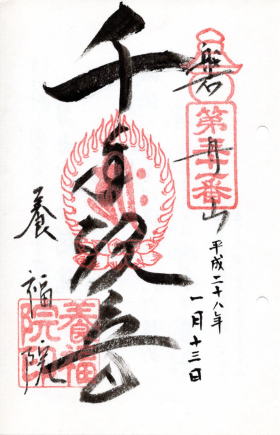 磐舟山
第五十一番
平成二十八年
一月十三日
千手観音
養福院
養福
院印